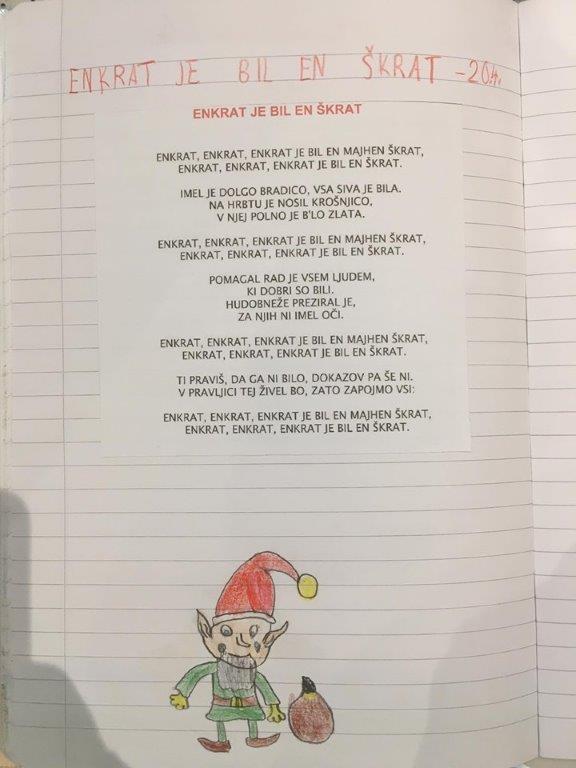 ENKRAT JE BIL EN ŠKRAT - 20.4.
ENKRAT JE BIL EN ŠKRAT
ENKRAT, ENKRAT, ENKRAT JE BIL EN MAJHEN ŠKRAT,
ENKRAT, ENKRAT, ENKRAT JE BIL EN ŠKRAT.
IMEL JE DOLGO BRADICO, VSA SIVA JE BILA.
NA HRBTU JE NOSIL KROŠNJICO,
V NJEJ POLNO JE B'LO ZLATA.
ENKRAT, ENKRAT, ENKRAT JE BIL EN MAJHEN ŠKRAT,
ENKRAT, ENKRAT, ENKRAT JE BIL EN ŠKRAT.
POMAGAL RAD JE VSEM LJUDEM,
KI DOBRI SO BILI.
HUDOBNEŽE PREZIRAL JE,
ZA NJIH NI IMEL OČI.
ENKRAT, ENKRAT, ENKRAT JE BIL EN MAJHEN ŠKRAT,
ENKRAT, ENKRAT, ENKRAT JE BIL EN ŠKRAT.
TI PRAVIŠ, DA GA NI BILO, DOKAZOV PA ŠE NI.
V PRAVLJICI TEJ ŽIVEL BO, ZATO ZAPOJMO VSI:
ENKRAT, ENKRAT, ENKRAT JE BIL EN MAJHEN ŠKRAT,
ENKRAT, ENKRAT, ENKRAT JE BIL EN ŠKRAT.